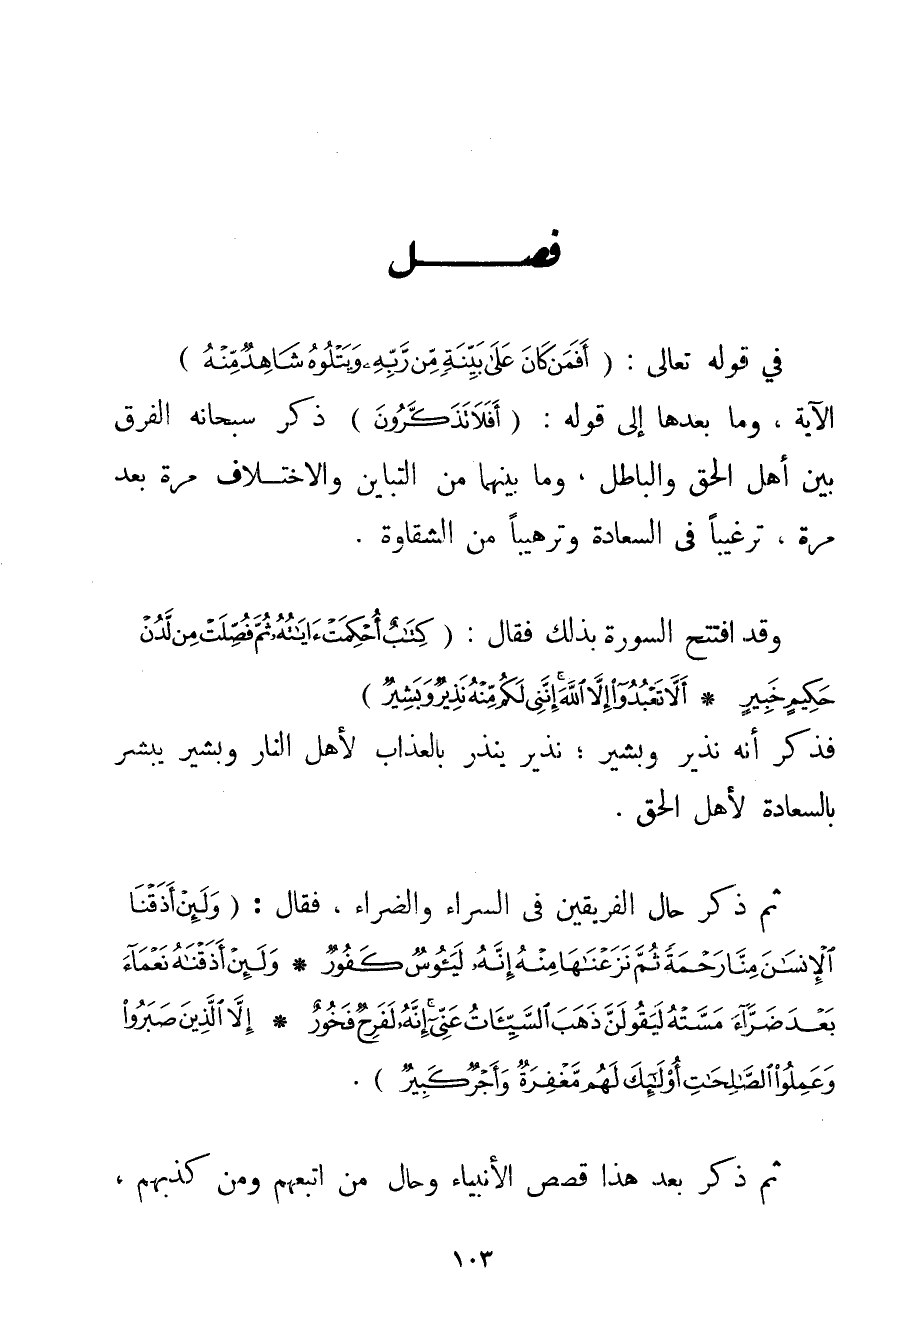 فصــــــــل
في قوله تعالى : ( أَفَمَن كَانَ عَلَىٰ بَيِّنَةٍ مِّن رَّبِّهِۦ وَيَتْلُوهُ شَاهِدٌ مِّنْهُ )
الآية ، وما بعدها إلى قوله : ( أَفَلَا تَذَكَّرُونَ ) ذكر سبحانه الفرق
بين أهل الحق والباطل ، وما بينهما من التباين والاختــلاف مرة بعد
مرة ، ترغيباً في السعادة وترهيباً من الشقاوة .
وقد افتتح السورة بذلك فقال : ( كِتَٰبٌ أُحْكِمَتْ ءَايَٰتُهُۥ ثُمَّ فُصِّلَتْ مِن لَّدُنْ
حَكِيمٍ خَبِيرٍ * أَلَّا تَعْبُدُوٓا۟ إِلَّا ٱللَّهَ ۚ إِنَّنِى لَكُم مِّنْهُ نَذِيرٌ وَبَشِيرٌ )
فذكر أنه نذير وبشير ؛ نذير ينذر بالعذاب لأهل النار وبشير يبشر
بالسعادة لأهل الحق .
ثم ذكر حال الفريقين في السراء والضراء ، فقال : ( وَلَئِنْ أَذَقْنَا
ٱلْإِنسَٰنَ مِنَّا رَحْمَةً ثُمَّ نَزَعْنَٰهَا مِنْهُ إِنَّهُۥ لَيَـُٔوسٌ كَفُورٌ * وَلَئِنْ أَذَقْنَٰهُ نَعْمَآءَ
بَعْدَ ضَرَّآءَ مَسَّتْهُ لَيَقُولَنَّ ذَهَبَ ٱلسَّيِّـَٔاتُ عَنِّىٓ ۚ إِنَّهُۥ لَفَرِحٌ فَخُورٌ * إِلَّا ٱلَّذِينَ صَبَرُوا۟
وَعَمِلُوا۟ ٱلصَّٰلِحَٰتِ أُو۟لَٰٓئِكَ لَهُم مَّغْفِرَةٌ وَأَجْرٌ كَبِيرٌ ) .
ثم ذكر بعد هذا قصص الأنبياء وحال من اتبعهم ومن كذبهم ،
١٠٣